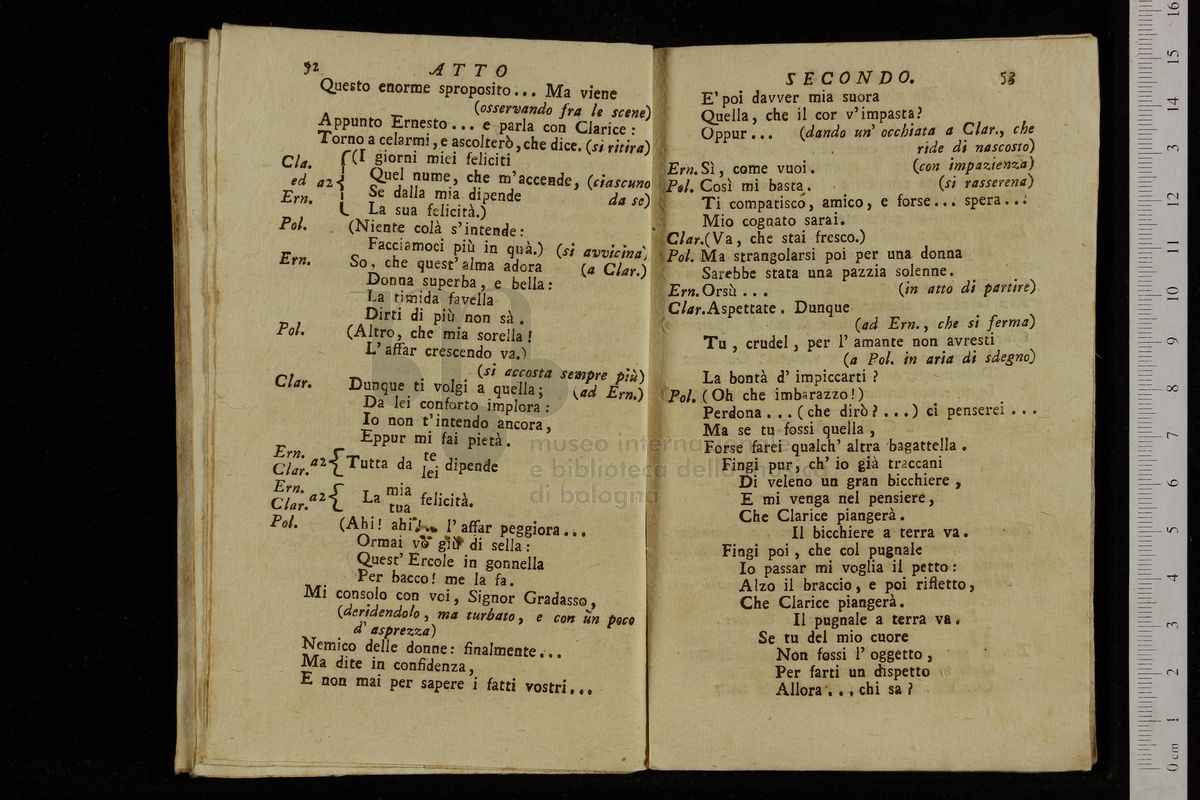 52 ATTO
Questo enorme sproposito... Ma viene
(osservando fra le scene)
Appunto Ernesto... e parla con Clarice:
Torno a celarmi, e ascolterò, che dice. (si ritira)
Cla. (I giorni miei feliciti
ed a2 Quel nume, che m'accende, (ciascuno
Ern. Se dalla mia dipende da se)
La sua felicità.)
Pol. (Niente colà s'intende:
Facciamoci più in quà.) (si avvicina)
Ern. So, che quest' alma adora (a Clar.)
Donna superba, e bella:
La timida favella
Dirti di più non sà.
Pol. (Altro, che mia sorella!
L' affar crescendo va.)
(si accosta sempre più)
Clar. Dunque ti volgi a quella; (ad Ern.)
Da lei conforto implora:
Io non t'intendo ancora,
Eppur mi fai pietà.
Ern. te
Clar. a2 Tutta da lei dipende
Ern. mia
Clar. a2 La tua felicità.
Pol. (Ahi! ahi!.. l' affar peggiora...
Ormai vò giù di sella:
Quest' Ercole in gonnella
Per bacco! me la fa.
Mi consolo con voi, Signor Gradasso,
(deridendolo, ma turbato, e con un poco
d' asprezza)
Nemico delle donne: finalmente...
Ma dite in confidenza,
E non mai per sapere i fatti vostri...
SECONDO. 53
E' poi davver mia suora
Quella, che il cor v'impasta?
Oppur... (dando un' occhiata a Clar., che
ride di nascosto)
Ern. Sì, come vuoi. (con impazienza)
Pol. Così mi basta. (si rasserena)
Ti compatisco, amico, e forse... spera...
Mio cognato sarai.
Clar. (Va, che stai fresco.)
Pol. Ma strangolarsi poi per una donna
Sarebbe stata una pazzia solenne.
Ern. Orsù... (in atto di partire)
Clar. Aspettate. Dunque
(ad Ern., che si ferma)
Tu, crudel, per l' amante non avresti
(a Pol. in aria di sdegno)
La bontà d' impiccarti?
Pol. (Oh che imbarazzo!)
Perdona... (che dirò?...) ci penserei...
Ma se tu fossi quella,
Forse farei qualch' altra bagattella.
Fingi pur, ch' io già traccani
Di veleno un gran bicchiere,
E mi venga nel pensiere,
Che Clarice piangerà.
Il bicchiere a terra va.
Fingi poi, che col pugnale
Io passar mi voglia il petto:
Alzo il braccio, e poi rifletto,
Che Clarice piangerà.
Il pugnale a terra va.
Se tu del mio cuore
Non fossi l' oggetto,
Per farti un dispetto
Allora..., chi sa?
museo internazionale
e biblioteca della musica
di bologna
0 cm 1 2 3 4 5 6 7 8 9 10 11 12 13 14 15 16